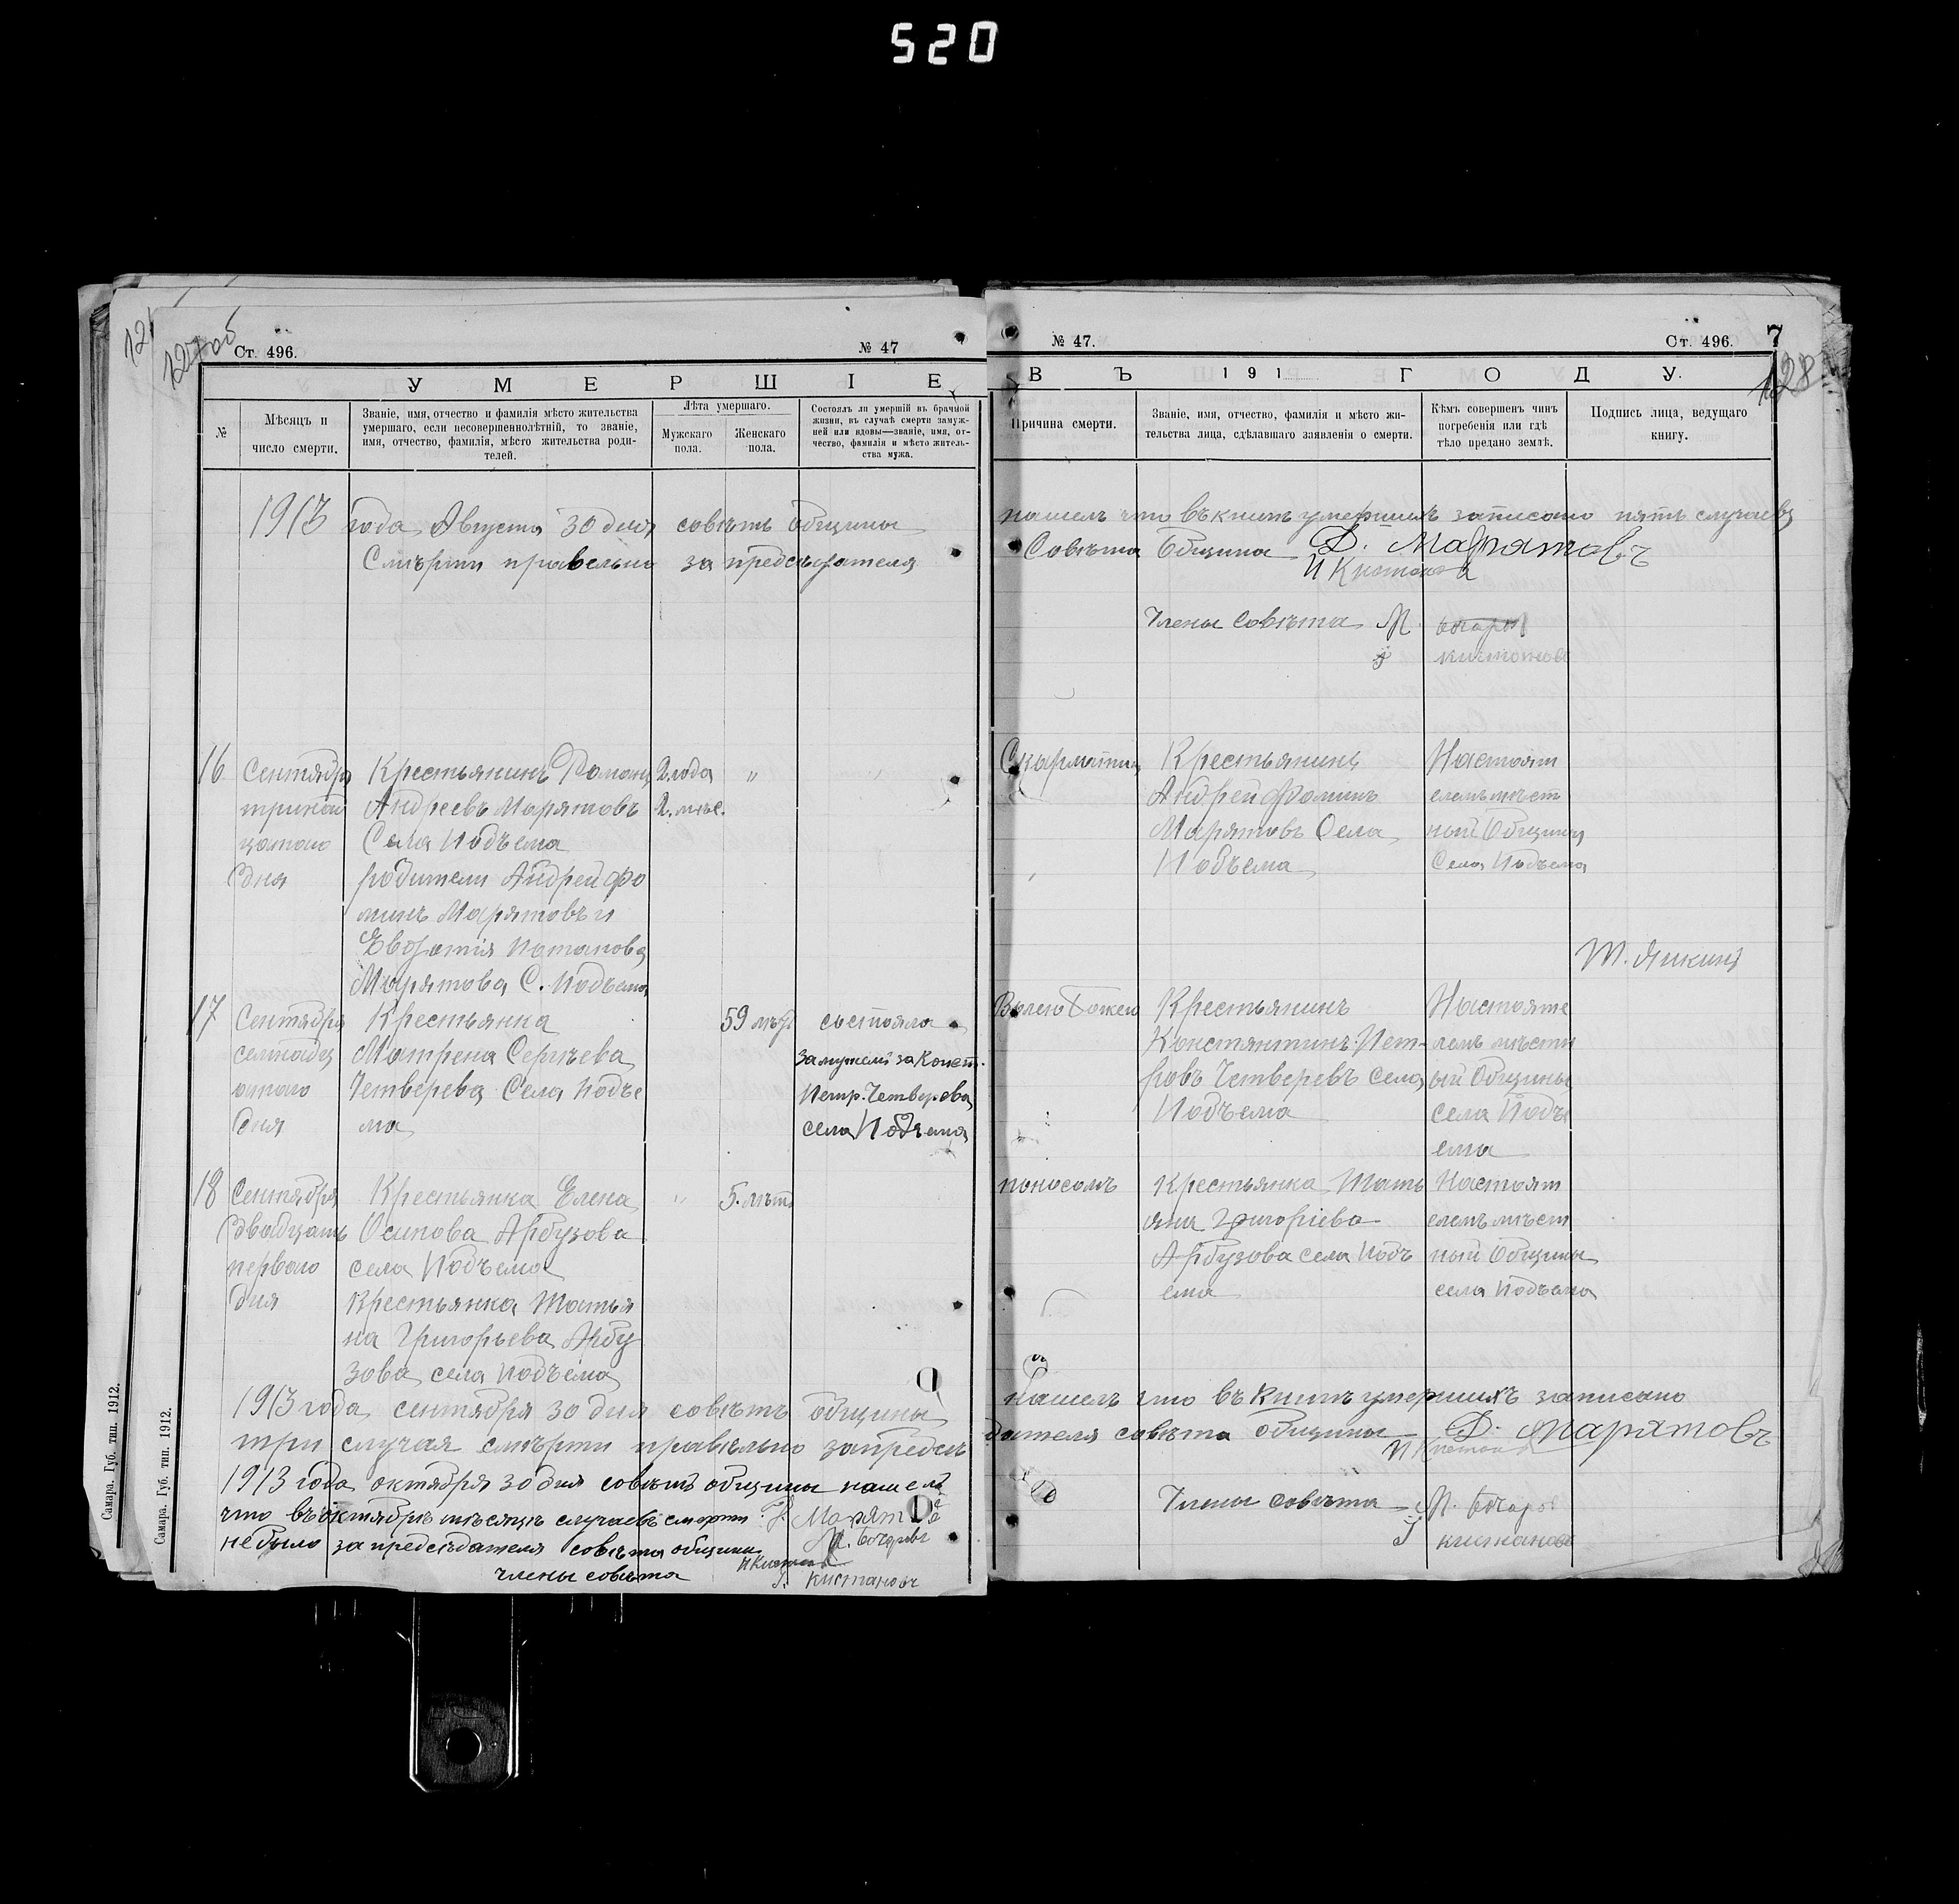 520
127об
Ст. 496.
№ 47
УМЕРШІЕ
№
Мѣсяцъ и число смерти.
Званіе, имя, отчество и фамилія мѣсто жительства
умершаго, если несовершеннолѣтній, то званіе,
имя, отчество, фамилія, мѣсто жительства роди-
телей.
Лѣта умершаго.
Мужскаго пола.
Женскаго пола.
Состоялъ ли умершій въ брачной
жизни, въ случаѣ смерти замуж-
ней или вдовы—званіе, имя, от-
чество, фамилія и мѣсто житель-
ства мужа.
1913 года Августа 30 дня совѣтъ общины
Смѣрти правельно за предсѣдателя
16
Сентября
тринад
цатаго
дня
Крестьянинъ Романъ
Андреевъ Марятовъ
Села Подъема
родители Андрей Фо
минъ Марятовъ и
Потапова
Марятова С. Подъема
2 года
2. мѣс.
17
Сентября
семнадц
атаго
дня
Крестьянка
Матрена Сергѣева
Четверева Села Подъе
ма
59 лѣтъ
состояла
замужем за Конст.
Петр. Четверева
села Подъема
18
Сентября
двадцать
перваго
дня
Крестьянка Елена
Осипова Арбузова
села Подъема
Крестьянка Татья
на Григорьева Арбу
зова села Подъема
5. лѣтъ
1913 года сентября 30 дня совѣтъ общины
три случая смѣрти правельно запредсѣ
1913 года октября 30 дня совѣтъ общины нашелъ
что въ октябрѣ мѣсяцѣ случаевъ смерти
не было за предсѣдателя совѣта общины
члены совѣта
М. Бочаровъ
Кистановъ
Самара. Губ. тип. 1912.
Самара. Губ. тип. 1912.
№ 47.
Ст. 496.
7
128
ВЪ 191 ГОДУ.
Причина смерти.
Званіе, имя, отчество, фамилія и мѣсто жи-
тельства лица, сдѣлавшаго заявленія о смерти.
Кѣмъ совершенъ чинъ
погребенія или гдѣ
тѣло предано землѣ.
Подпись лица, ведущаго
книгу.
нашелъ что въ книгѣ умершихъ записано пять случаевъ
Совѣта Общины Д. Марятовъ
Члены Совѣта М. Бочаров
Кистановъ
Крестьянинъ
Андрей Фоминъ
Марятовъ Села
Подъема
Настоят
елемъ мѣст
ный Общины
Села Подъема
Т. Яикинъ
Волею Божею
Крестьянинъ
Константинъ Пет-
ровъ Четверевъ села
Подъема
Настояте
лемъ мѣстн
ый Общины
села Подъ
ема
поносомъ
Крестьянка Тать
яна Григоріева
Арбузова села Подъ
ема
Настоят
елемъ мѣст
ный Общины
села Подъема
нашелъ что въ книгѣ умершихъ записано
дателя совѣта общины Д. Марятовъ
Члены совѣта М. Бочаров